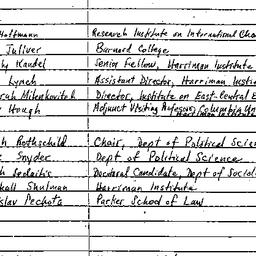 Hoffmann Research Institute on International Cha
Juliver Barnard College
Kandel Senior Fellow, Harriman Institute
Lynch Assistant Director, Harriman Insti
rah Milenkovitch Director, Institute on East-Central E
Hough Adjunct Visiting Professor, Columbia Un
Harriman Institute
h Rothschild Chair, Dept of Political Scien
Snyder Dept of Political Science
h Sedaitis Doctoral Candidate, Dept of Sociol
hall Shulman Harriman Institute
slav Pechota Parker School of Law